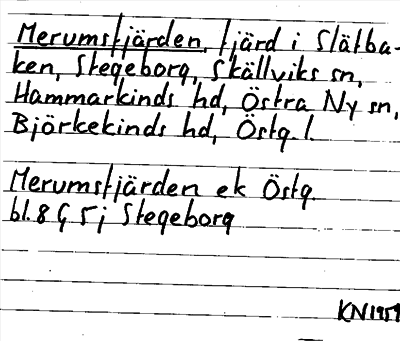 Merumsfjärden, fjärd i Slätba-
ken, Stegeborg, Skällviks sn,
Hammarkinds hd, Östra Ny sn,
Björkekinds hd, Östg. l.
Merumsfjärden ek Östg.
bl. 8 G 5 j Stegeborg
KN 1959